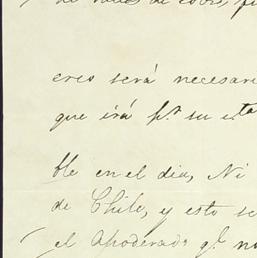 de
eres será necesari
que irá p.ª su e.ta
ble en el dia, Ni
de Chile, y esto se
el Apoderado q.e no